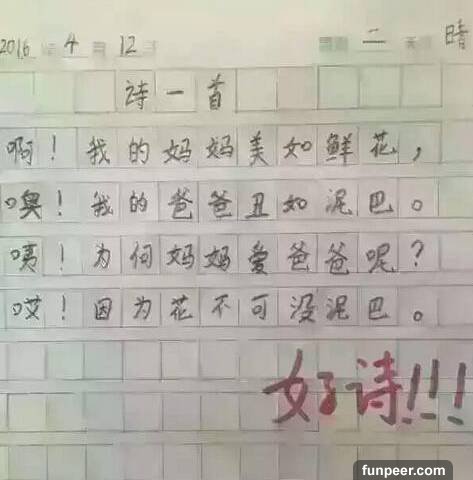 2016 年 4 月 12 日 星期 二 天气 晴
诗一首
啊！我的妈妈美如鲜花，
噢！我的爸爸丑如泥巴。
咦！为何妈妈爱爸爸呢？
哎！因为花不可没泥巴。
好诗!!!
funpeer.com